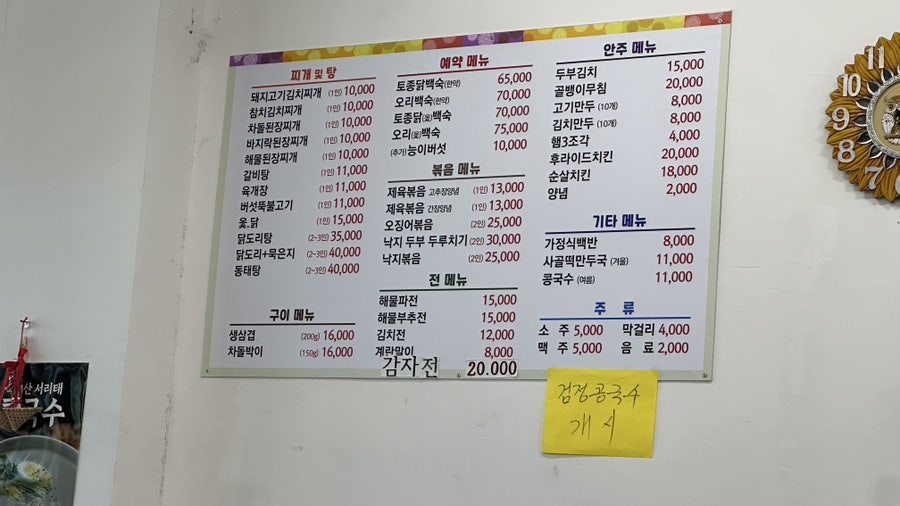 찌개 및 탕
돼지고기김치찌개 (1인) 10,000
참치김치찌개 (1인) 10,000
차돌된장찌개 (1인) 10,000
바지락된장찌개 (1인) 10,000
해물된장찌개 (1인) 10,000
갈비탕 (1인) 11,000
육개장 (1인) 11,000
버섯뚝불고기 (1인) 11,000
옻,닭 (1인) 15,000
닭도리탕 (2~3인) 35,000
닭도리+묵은지 (2~3인) 40,000
동태탕 (2~3인) 40,000
구이 메뉴
생삼겹 (200g) 16,000
차돌박이 (150g) 16,000
예약 메뉴
토종닭백숙(한약) 65,000
오리백숙(한약) 70,000
토종닭(옻)백숙 70,000
오리(옻)백숙 75,000
(추가)능이버섯 10,000
볶음 메뉴
제육볶음 고추장양념 (1인) 13,000
제육볶음 간장양념 (1인) 13,000
오징어볶음 (2인) 25,000
낙지 두부 두루치기 (2인) 30,000
낙지볶음 (2인) 25,000
전 메뉴
해물파전 15,000
해물부추전 15,000
김치전 12,000
계란말이 8,000
감자전 20.000
안주 메뉴
두부김치 15,000
골뱅이무침 20,000
고기만두 (10개) 8,000
김치만두 (10개) 8,000
햄3조각 4,000
후라이드치킨 20,000
순살치킨 18,000
양념 2,000
기타 메뉴
가정식백반 8,000
사골떡만두국 (겨울) 11,000
콩국수 (여름) 11,000
주 류
소 주 5,000 막걸리 4,000
맥 주 5,000 음 료 2,000
검정콩국수
개시
11
10
9
8
7
산 서리태
국수